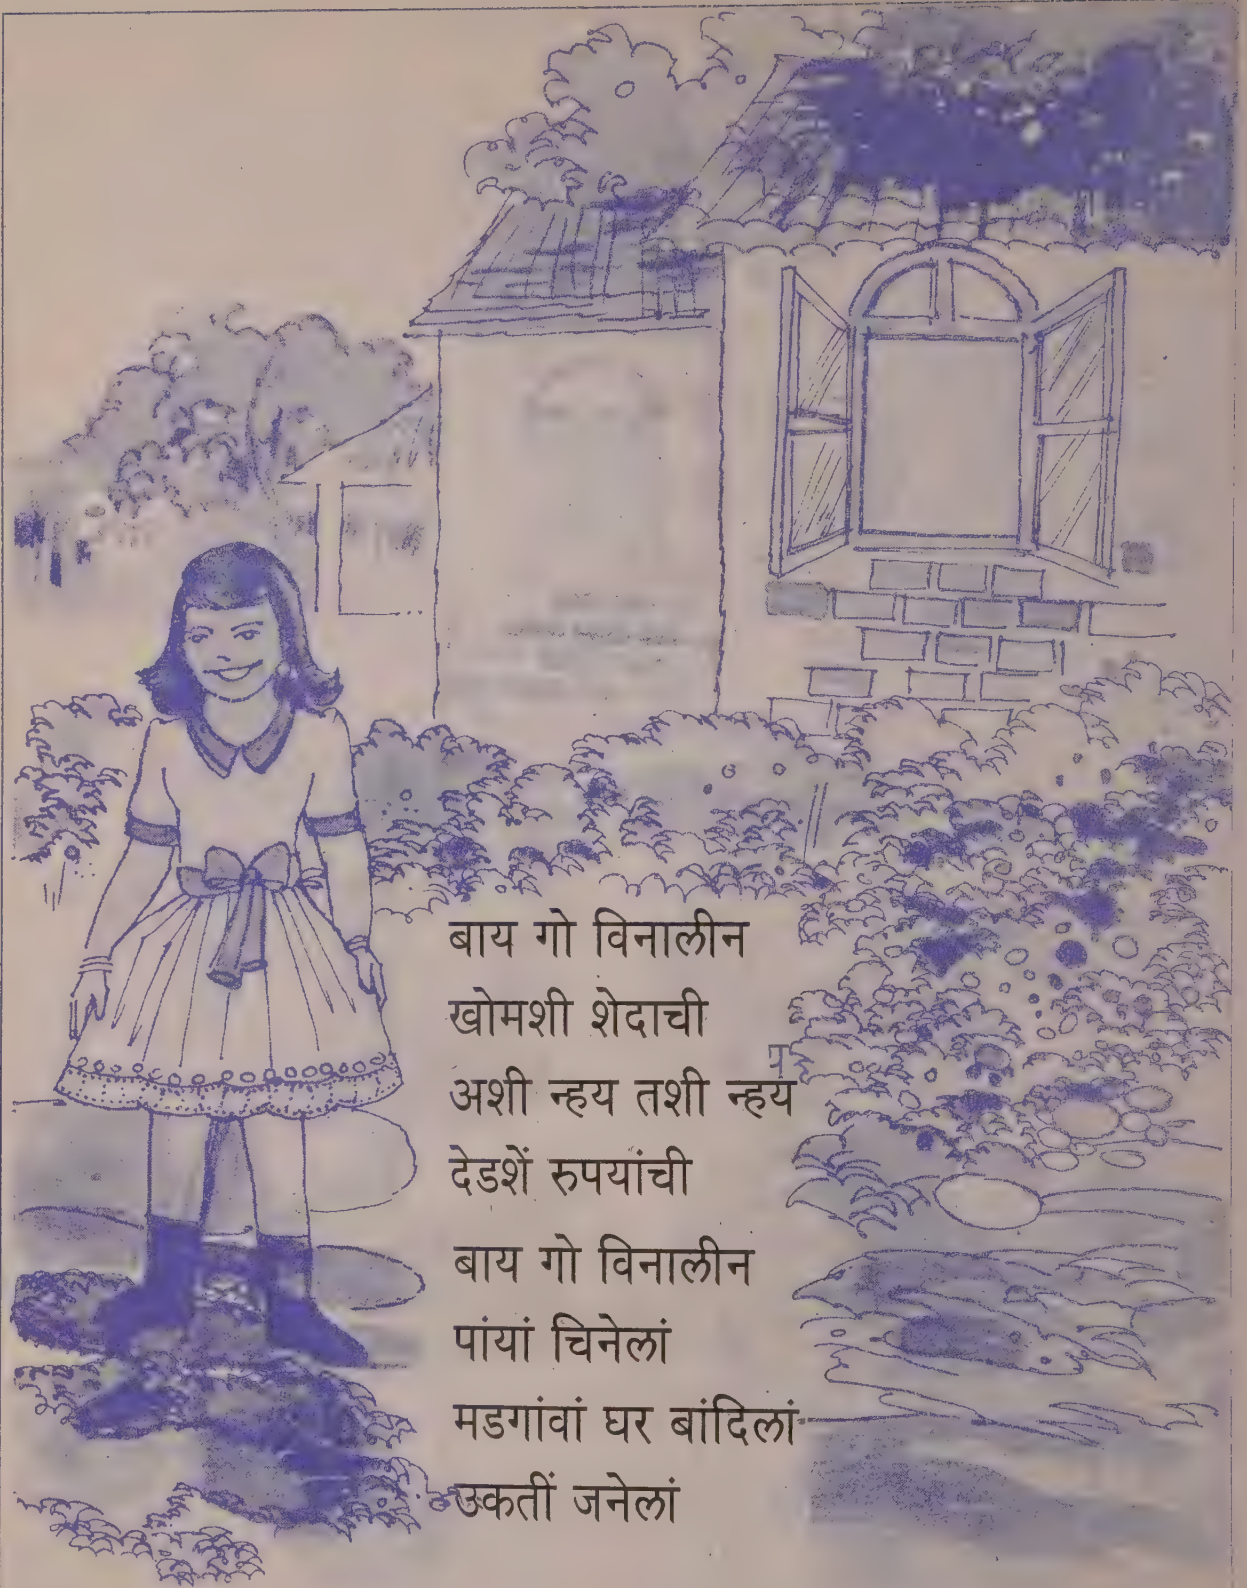 बाय गो विनालीन
खोमशी शेदाची
अशी न्हय तशी न्हय
देडशें रुपयांची
बाय गो विनालीन
पांयां चिनेलां
मडगांवां घर बांदिलां
उकतीं जनेलां